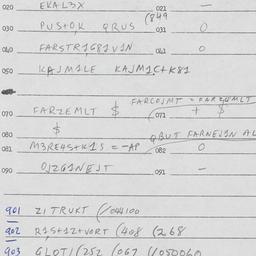 020 EKAL3X 021 —
(849
030 PUS+OK QRUS 031 O
040 FARSTR1G81V1N 041 O
050 KAJM1LE KAJM1C+K81
070 FARZEMLT $ 071 + $
080 $
QBUT FARNEJ1N AL
081 M3RE4S+K1S = -AP 082 O
090 OJZG1NEJT 091 —
901 ZITRUKT (/044100
902 R1S+1Z+VORT (408 (268
903 GLOTI(252 (067 (/050060